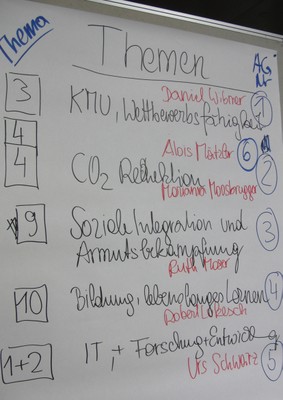 Thema
Themen
AG
Nr
Daniel Wibmer
3 KMU, Wettbewerbsfähigkeit 1
4 Alois Mätzler 6
4 CO2 Reduktion 2
Marianne Moosbrugger
9 Soziale Integration und 3
Armutsbekämpfung
Ruth Moser
10 Bildung, lebenslanges Lernen 4
Robert
1+2 IT, + Forschung + Entwicklg 5
Urs Schwarz